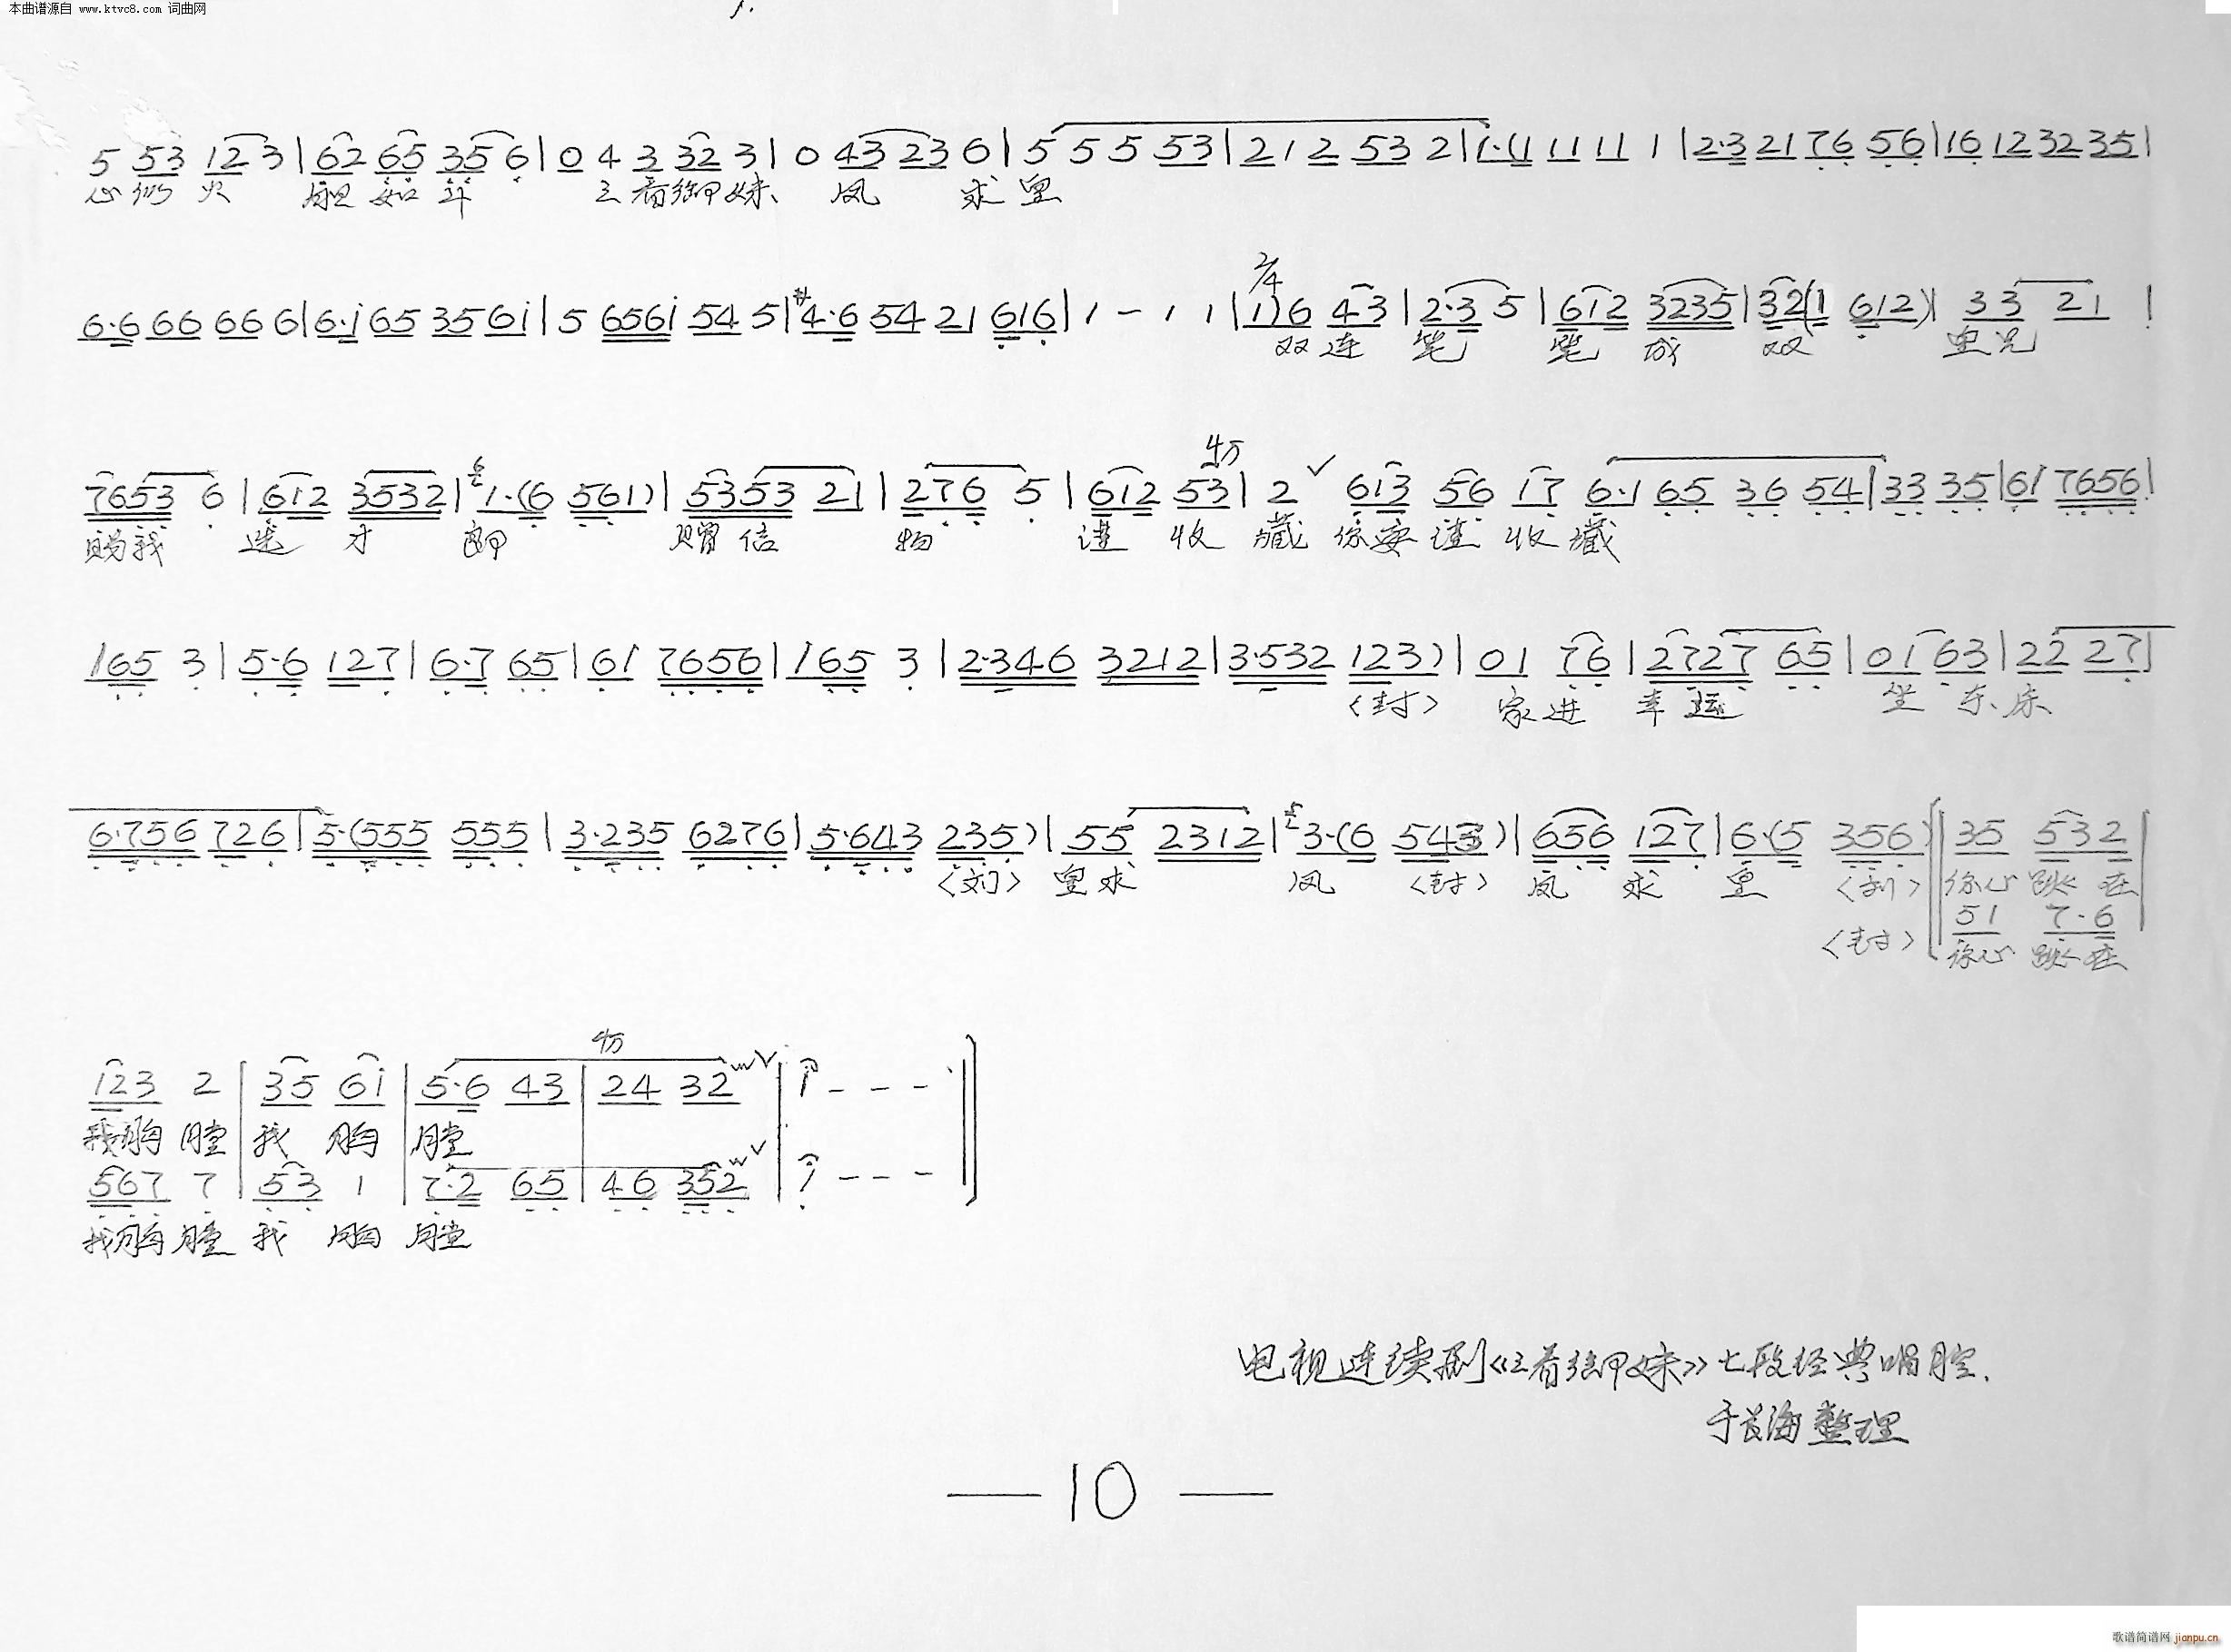 本曲谱源自 www.ktvc8.com 词曲网
5 53 12 3 | 62 65 35 6 | 0 4 3 32 3 | 0 43 23 6 | 5 5 5 53 | 2 1 2 53 2 | 1·11 11 11 1 | 2·3 21 76 56 | 16 12 32 35 |
心似 火 胆 如 斗 三看御妹 凤 求 凰
6·6 66 66 6 | 6·i 65 35 6i | 5 656i 54 5 | #4·6 54 21 616 | 1 - 1 1 | 2/4 1)6 43 | 2·3 5 | 612 3235 | 32(1 612) | 33 21 |
双 连 笔 笔 成 双 皇兄
7653 6 | 612 3532 | 6 1·(6 561) | 5353 21 | 276 5 | 612 53 | 2 ✓ 613 56 17 6·1 65 36 54 | 33 35 | 61 7656 |
赐我 选 才 郎 赠 信 物 谨 收 藏 你要 谨 收 藏
165 3 | 5·6 127 | 6·7 65 | 61 7656 | 165 3 | 2·346 3212 | 3·532 123) | 01 76 | 2727 65 | 01 63 | 22 27 |
〈封〉 家进 幸 运 坐 东 床
6·756 726 | 5·(555 555 | 3·235 6276 | 5·643 235) | 55 2312 | 5 3·(6 543) | 656 127 | 6·(5 356) | 35 532
〈刘〉 凰求 凤 〈封〉 凤 求 凰 〈刘〉 你心 跳 在
51 7·6
〈封〉 你心 跳 在
123 2 | 35 6i | 5·6 43 | 24 32 | 1 - - -
我胸 膛 我 胸 膛
567 7 | 53 1 | 7·2 65 | 46 352 | 1 - - -
我胸 膛 我 胸 膛
电视连续剧《三看御妹》七段经典唱腔.
于长海整理
— 10 —
歌谱简谱网 jianpu.cn